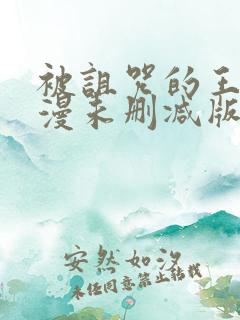 被诅咒的王
漫未删减版
安然如汐
未经同意禁止转载